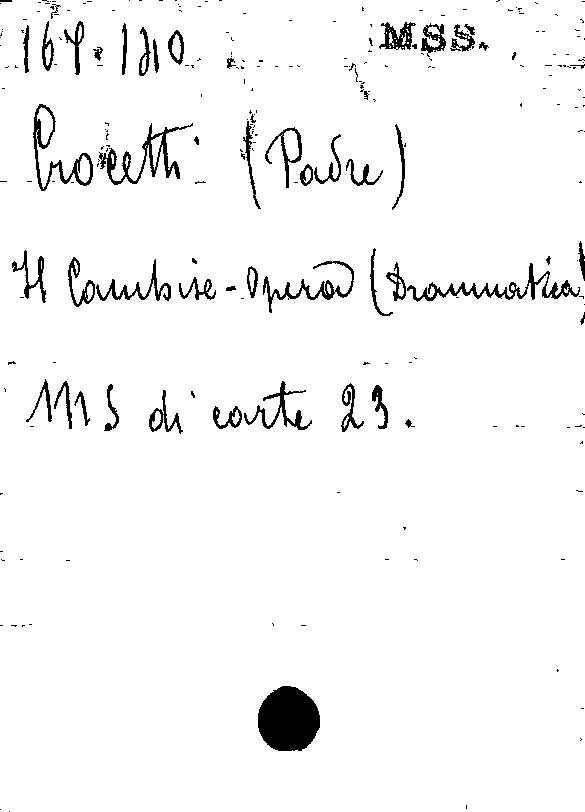 MSS.
Crocetti (Padre)
Il Cambise - Opera (Drammatica)
MS di carte 23.